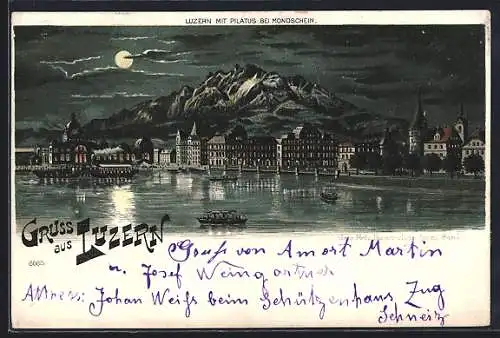 LUZERN MIT PILATUS BEI MONDSCHEIN.
GRUSS
aus
LUZERN
Gruß von Amort Martin
u. Josef Weingartner
Address: Johan Weiß beim Schützenhaus, Zug
Schweiz